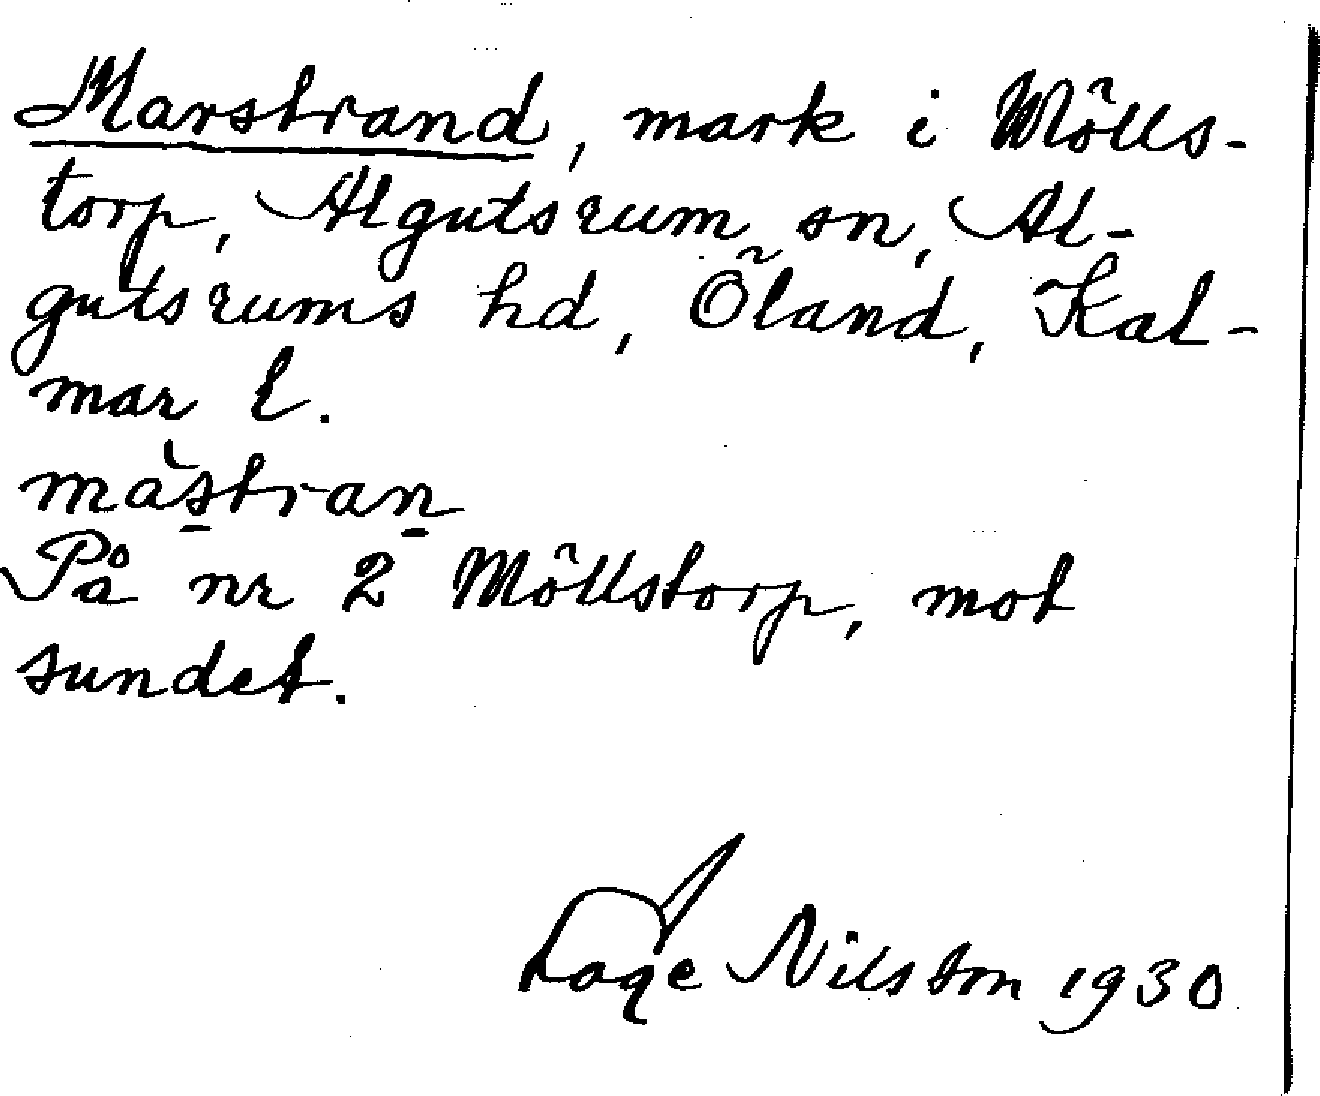 Marstrand, mark i Mölls-
torp, Algutsrum sn, Al-
gutsrums hd, Öland, Kal-
mar l.
màstran
På nr 2 Möllstorp, mot
sundet.
Tage Nilsson 1930